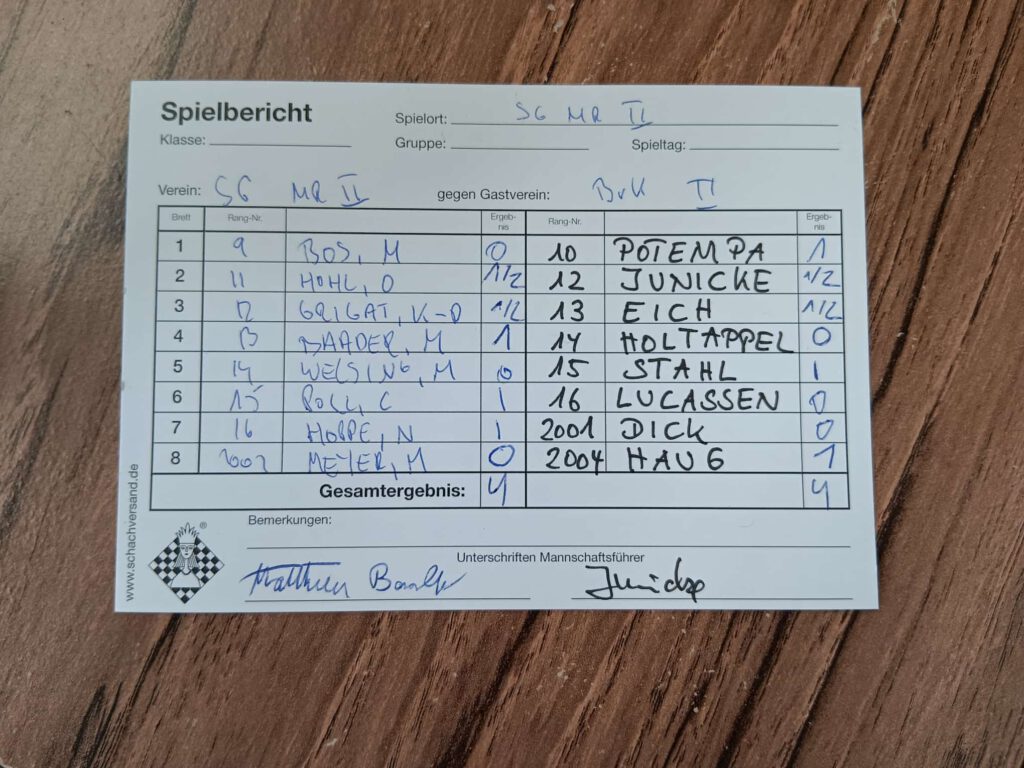 Spielbericht
Spielort: SG MR II
Klasse: Gruppe: Spieltag:
Verein: SG MR II gegen Gastverein: BvK II
Brett Rang-Nr. Ergeb-nis Rang-Nr. Ergeb-nis
1 9 BOS, M 0 10 POTEMPA 1
2 11 HOHL, O 1/2 12 JUNICKE 1/2
3 12 GRIGAT, K-D 1/2 13 EICH 1/2
4 13 BAADER, M 1 14 HOLTAPPEL 0
5 14 WELSING, M 0 15 STAHL 1
6 15 POLL, C 1 16 LUCASSEN 0
7 16 HOPPE, N 1 2001 DICK 0
8 2002 MEYER, M 0 2004 HAUG 1
Gesamtergebnis: 4 4
Bemerkungen:
Unterschriften Mannschaftsführer
Junicke
www.schachversand.de
®